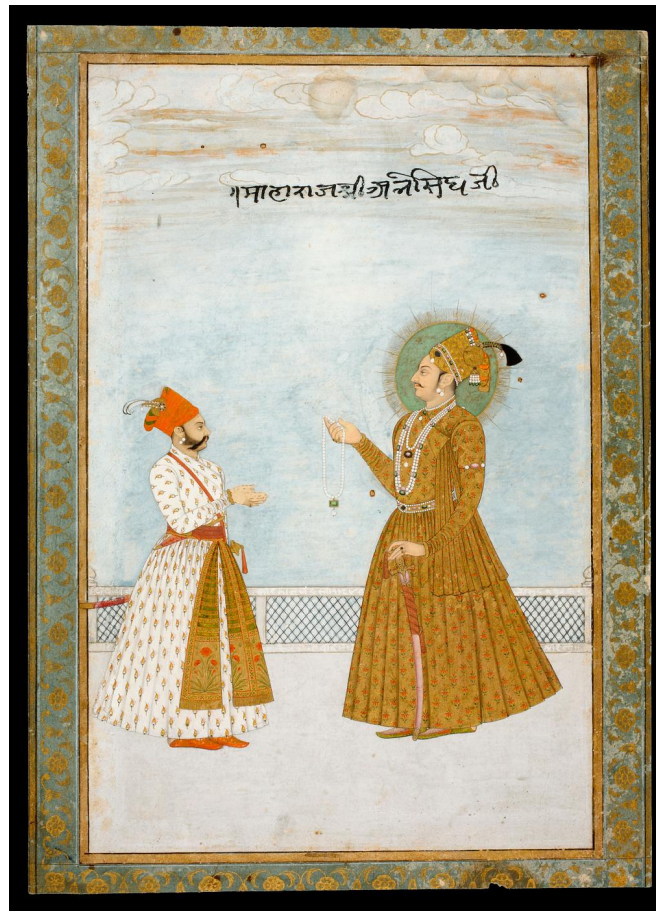 ।माहाराजश्री॰अभेसिंघ जी॰